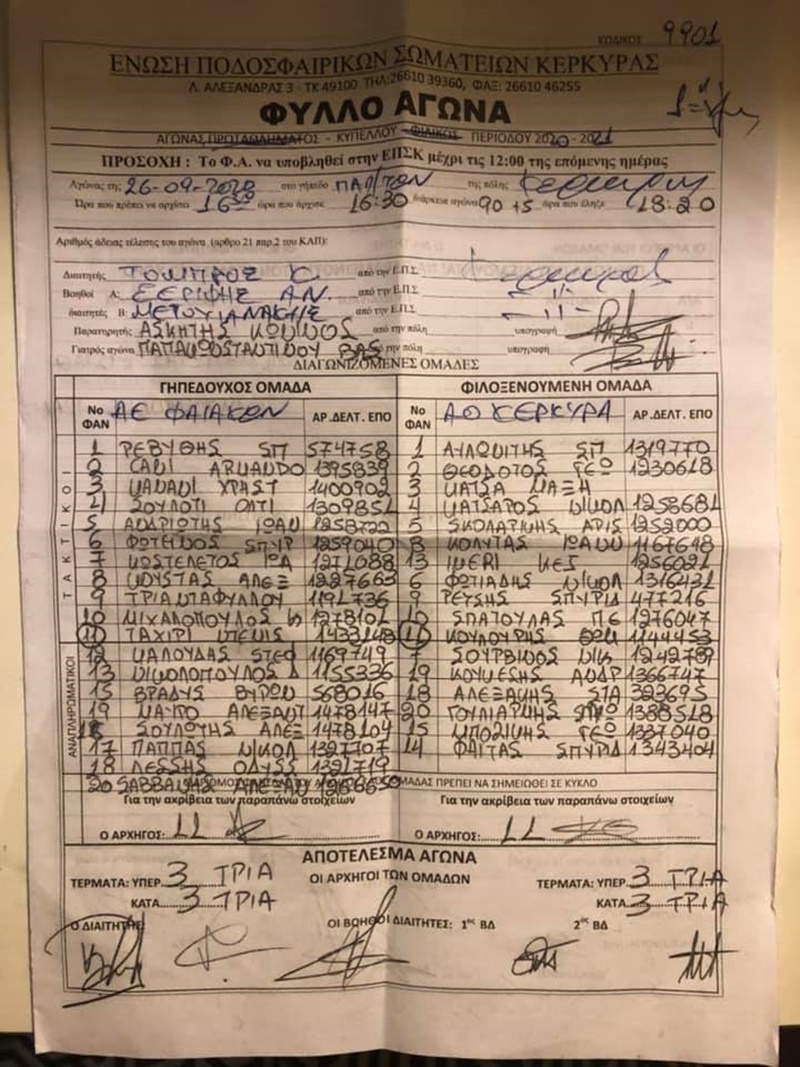 ΚΩΔΙΚΟΣ 9901
ΕΝΩΣΗ ΠΟΔΟΣΦΑΙΡΙΚΩΝ ΣΩΜΑΤΕΙΩΝ ΚΕΡΚΥΡΑΣ
Λ. ΑΛΕΞΑΝΔΡΑΣ 3 - ΤΚ 49100 ΤΗΛ:26610 39360, ΦΑΞ: 26610 46255
ΦΥΛΛΟ ΑΓΩΝΑ
ΑΓΩΝΑΣ ΠΡΩΤΑΘΛΗΜΑΤΟΣ - ΚΥΠΕΛΛΟΥ - ΦΙΛΙΚΟΣ ΠΕΡΙΟΔΟΥ 2020 - 2021
ΠΡΟΣΟΧΗ : Το Φ.Α. να υποβληθεί στην ΕΠΣΚ μέχρι τις 12:00 της επόμενης ημέρας
Αγώνας της 26-09-2020 στο γήπεδο της πόλης
Ώρα που πρέπει να αρχίσει 16 ώρα που άρχισε 16:30 διάρκεια αγώνα 90 +5 ώρα που έληξε 18:20
Αριθμός άδειας τέλεσης του αγώνα (αρθρο 21 παρ.2 του ΚΑΠ):
Διαιτητής ΤΟΜΠΡΟΣ Κ. από την Ε.Π.Σ. Κερκυρας
Βοηθοί Α: ΣΕΡΙΦΗΣ ΑΝ. από την Ε.Π.Σ. -//-
διαιτητές Β: από την Ε.Π.Σ. -//-
Παρατηρητής από την πόλη υπογραφή
Γιατρός αγώνα ΠΑΠΑΚΩΝΣΤΑΝΤΙΝΟΥ ΒΑΣ από την πόλη υπογραφή
ΔΙΑΓΩΝΙΖΟΜΕΝΕΣ ΟΜΑΔΕΣ
ΓΗΠΕΔΟΥΧΟΣ ΟΜΑΔΑ ΦΙΛΟΞΕΝΟΥΜΕΝΗ ΟΜΑΔΑ
Νο ΦΑΝ ΑΕ ΦΑΙΑΚΩΝ ΑΡ.ΔΕΛΤ. ΕΠΟ Νο ΦΑΝ ΑΟ ΚΕΡΚΥΡΑ ΑΡ.ΔΕΛΤ. ΕΠΟ
ΤΑΚΤΙΚΟΙ
1 ΡΕΒΥΘΗΣ ΣΠ 574758 1 ΑΥΛΩΝΙΤΗΣ ΣΠ 1319770
2 CANI ARMANDO 1395839 2 ΘΕΟΔΟΤΟΣ ΓΕΩ 1230618
3 1400902 3 ΜΑΤΣΑ ΜΑΞΗ
4 ΣΟΥΛΟΤΙ ΟΛΤΙ 1309851 4 ΚΑΤΣΑΡΟΣ ΝΙΚΟΛ 1258681
5 ΑΝΔΡΙΩΤΗΣ ΙΩΑΝ 1258700 5 ΣΚΟΛΑΡΙΚΗΣ ΑΡΙΣ 1252000
6 ΦΩΤΕΙΝΟΣ ΣΠΥΡ 1259040 8 ΚΟΛΥΤΑΣ ΙΩΑΝ 1167648
7 ΚΟΣΤΕΛΕΤΟΣ ΙΩΑ 1271088 13 1256021
8 ΚΟΥΣΤΑΣ ΑΛΕΞ 1227663 6 ΦΩΤΙΑΔΗΣ ΝΙΚΟΛ 1316431
9 ΤΡΙΑΝΤΑΦΥΛΛΟΥ 1191736 9 ΡΕΥΣΗΣ ΣΠΥΡΙΔ 477216
10 ΜΙΧΑΛΟΠΟΥΛΟΣ 1278102 10 ΣΠΑΤΟΥΛΑΣ ΠΕ 1276047
11 ΤΑΧΙΡΙ 1433148 11 ΚΟΥΛΟΥΡΗΣ 1144453
ΑΝΑΠΛΗΡΩΜΑΤΙΚΟΙ
12 ΚΑΛΟΥΔΑΣ ΣΤΕΦ 1169749 7 ΣΟΥΡΒΙΝΟΣ ΝΙΚ 1242789
13 ΝΙΚΟΛΟΠΟΥΛΟΣ Δ 1155336 19 ΑΝΔΡ 1366747
15 ΒΡΑΔΗΣ ΒΥΡΩΝ 568016 18 ΑΛΕΞΑΚΗΣ ΣΤΑ 323695
19 ΑΛΕΞΑΝΤ 1478147 20 ΓΟΥΛΙΑΡΜΗΣ ΣΠΥΡ 1388518
ΣΟΥΛΩΤΗΣ ΑΛΕΞ 1478104 15 ΜΠΟΖΙΚΗΣ ΓΕΩ 1337040
17 ΠΑΠΠΑΣ ΝΙΚΟΛ 1327707 14 ΦΑΪΤΑΣ ΣΠΥΡΙΔ 1343404
18 ΛΕΣΣΗΣ ΟΔΥΣΣ 1321719
20 ΣΑΒΒΑΝΗΣ ΑΛΕΞΑΝ ΟΜΑΔΑΣ ΠΡΕΠΕΙ ΝΑ ΣΗΜΕΙΩΘΕΙ ΣΕ ΚΥΚΛΟ
Για την ακρίβεια των παραπάνω στοιχείων Για την ακρίβεια των παραπάνω στοιχείων
Ο ΑΡΧΗΓΟΣ: 11 Ο ΑΡΧΗΓΟΣ: 11
ΑΠΟΤΕΛΕΣΜΑ ΑΓΩΝΑ
ΤΕΡΜΑΤΑ: ΥΠΕΡ 3 ΤΡΙΑ ΟΙ ΑΡΧΗΓΟΙ ΤΩΝ ΟΜΑΔΩΝ ΤΕΡΜΑΤΑ: ΥΠΕΡ 3 ΤΡΙΑ
ΚΑΤΑ 3 ΤΡΙΑ ΚΑΤΑ 3 ΤΡΙΑ
Ο ΔΙΑΙΤΗΤΗΣ ΟΙ ΒΟΗΘΟΙ ΔΙΑΙΤΗΤΕΣ: 1ος ΒΔ 2ος ΒΔ